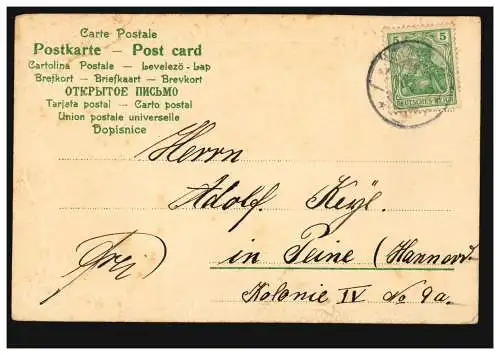 Carte Postale
Postkarte — Post card
Cartolina Postale — Levelező-Lap
Brefkort — Briefkaart — Brevkort
ОТКРЫТОЕ ПИСЬМО
Tarjeta postal — Carto postal
Union postale universelle
Dopisnice
5 5
DEUTSCHES REICH
Herrn
Adolf. Keÿl.
in Peine (Hannov.
Kolonie IV No 9a.